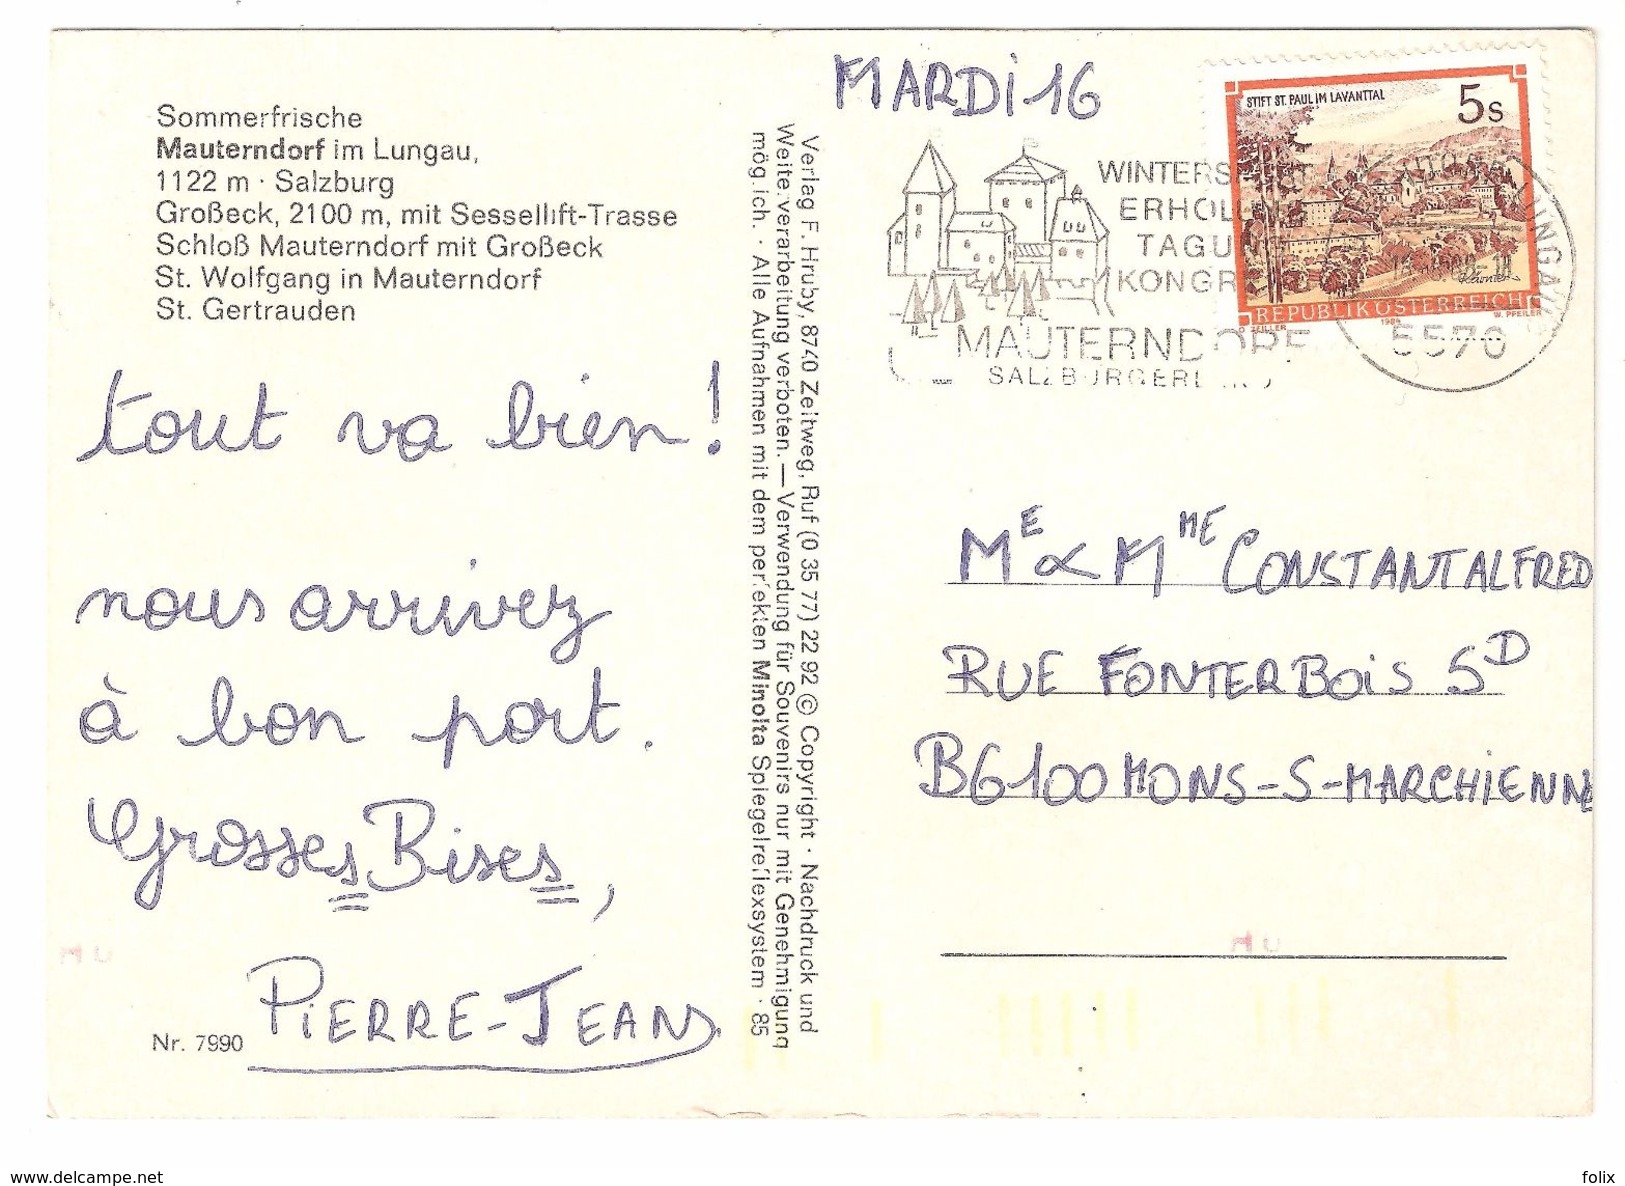 Sommerfrische
Mauterndorf im Lungau,
1122 m · Salzburg
Großeck, 2100 m, mit Sessellift-Trasse
Schloß Mauterndorf mit Großeck
St. Wolfgang in Mauterndorf
St. Gertrauden
tout va bien !
nous arrivez
à bon port.
Grosses Bises,
PIERRE-JEAN
Nr. 7990
Verlag F. Hruby, 8740 Zeitweg, Ruf (0 35 77) 22 92 © Copyright · Nachdruck und
Weiterverarbeitung verboten. — Verwendung für Souvenirs nur mit Genehmigung
möglich. · Alle Aufnahmen mit dem perfekten Minolta Spiegelreflexsystem · 85
MARDI 16
STIFT ST. PAUL IM LAVANTTAL
5s
REPUBLIK ÖSTERREICH
O. ZEILLER 1984 W. PFEILER
WINTERS
ERHOL
TAGU
KONGR
MAUTERNDORF
SALZBURGERL
5570
ME & MME CONSTANT ALFRED
RUE FONTERBOIS 5D
B6100 MONS-S-MARCHIENNE
www.delcampe.net
folix